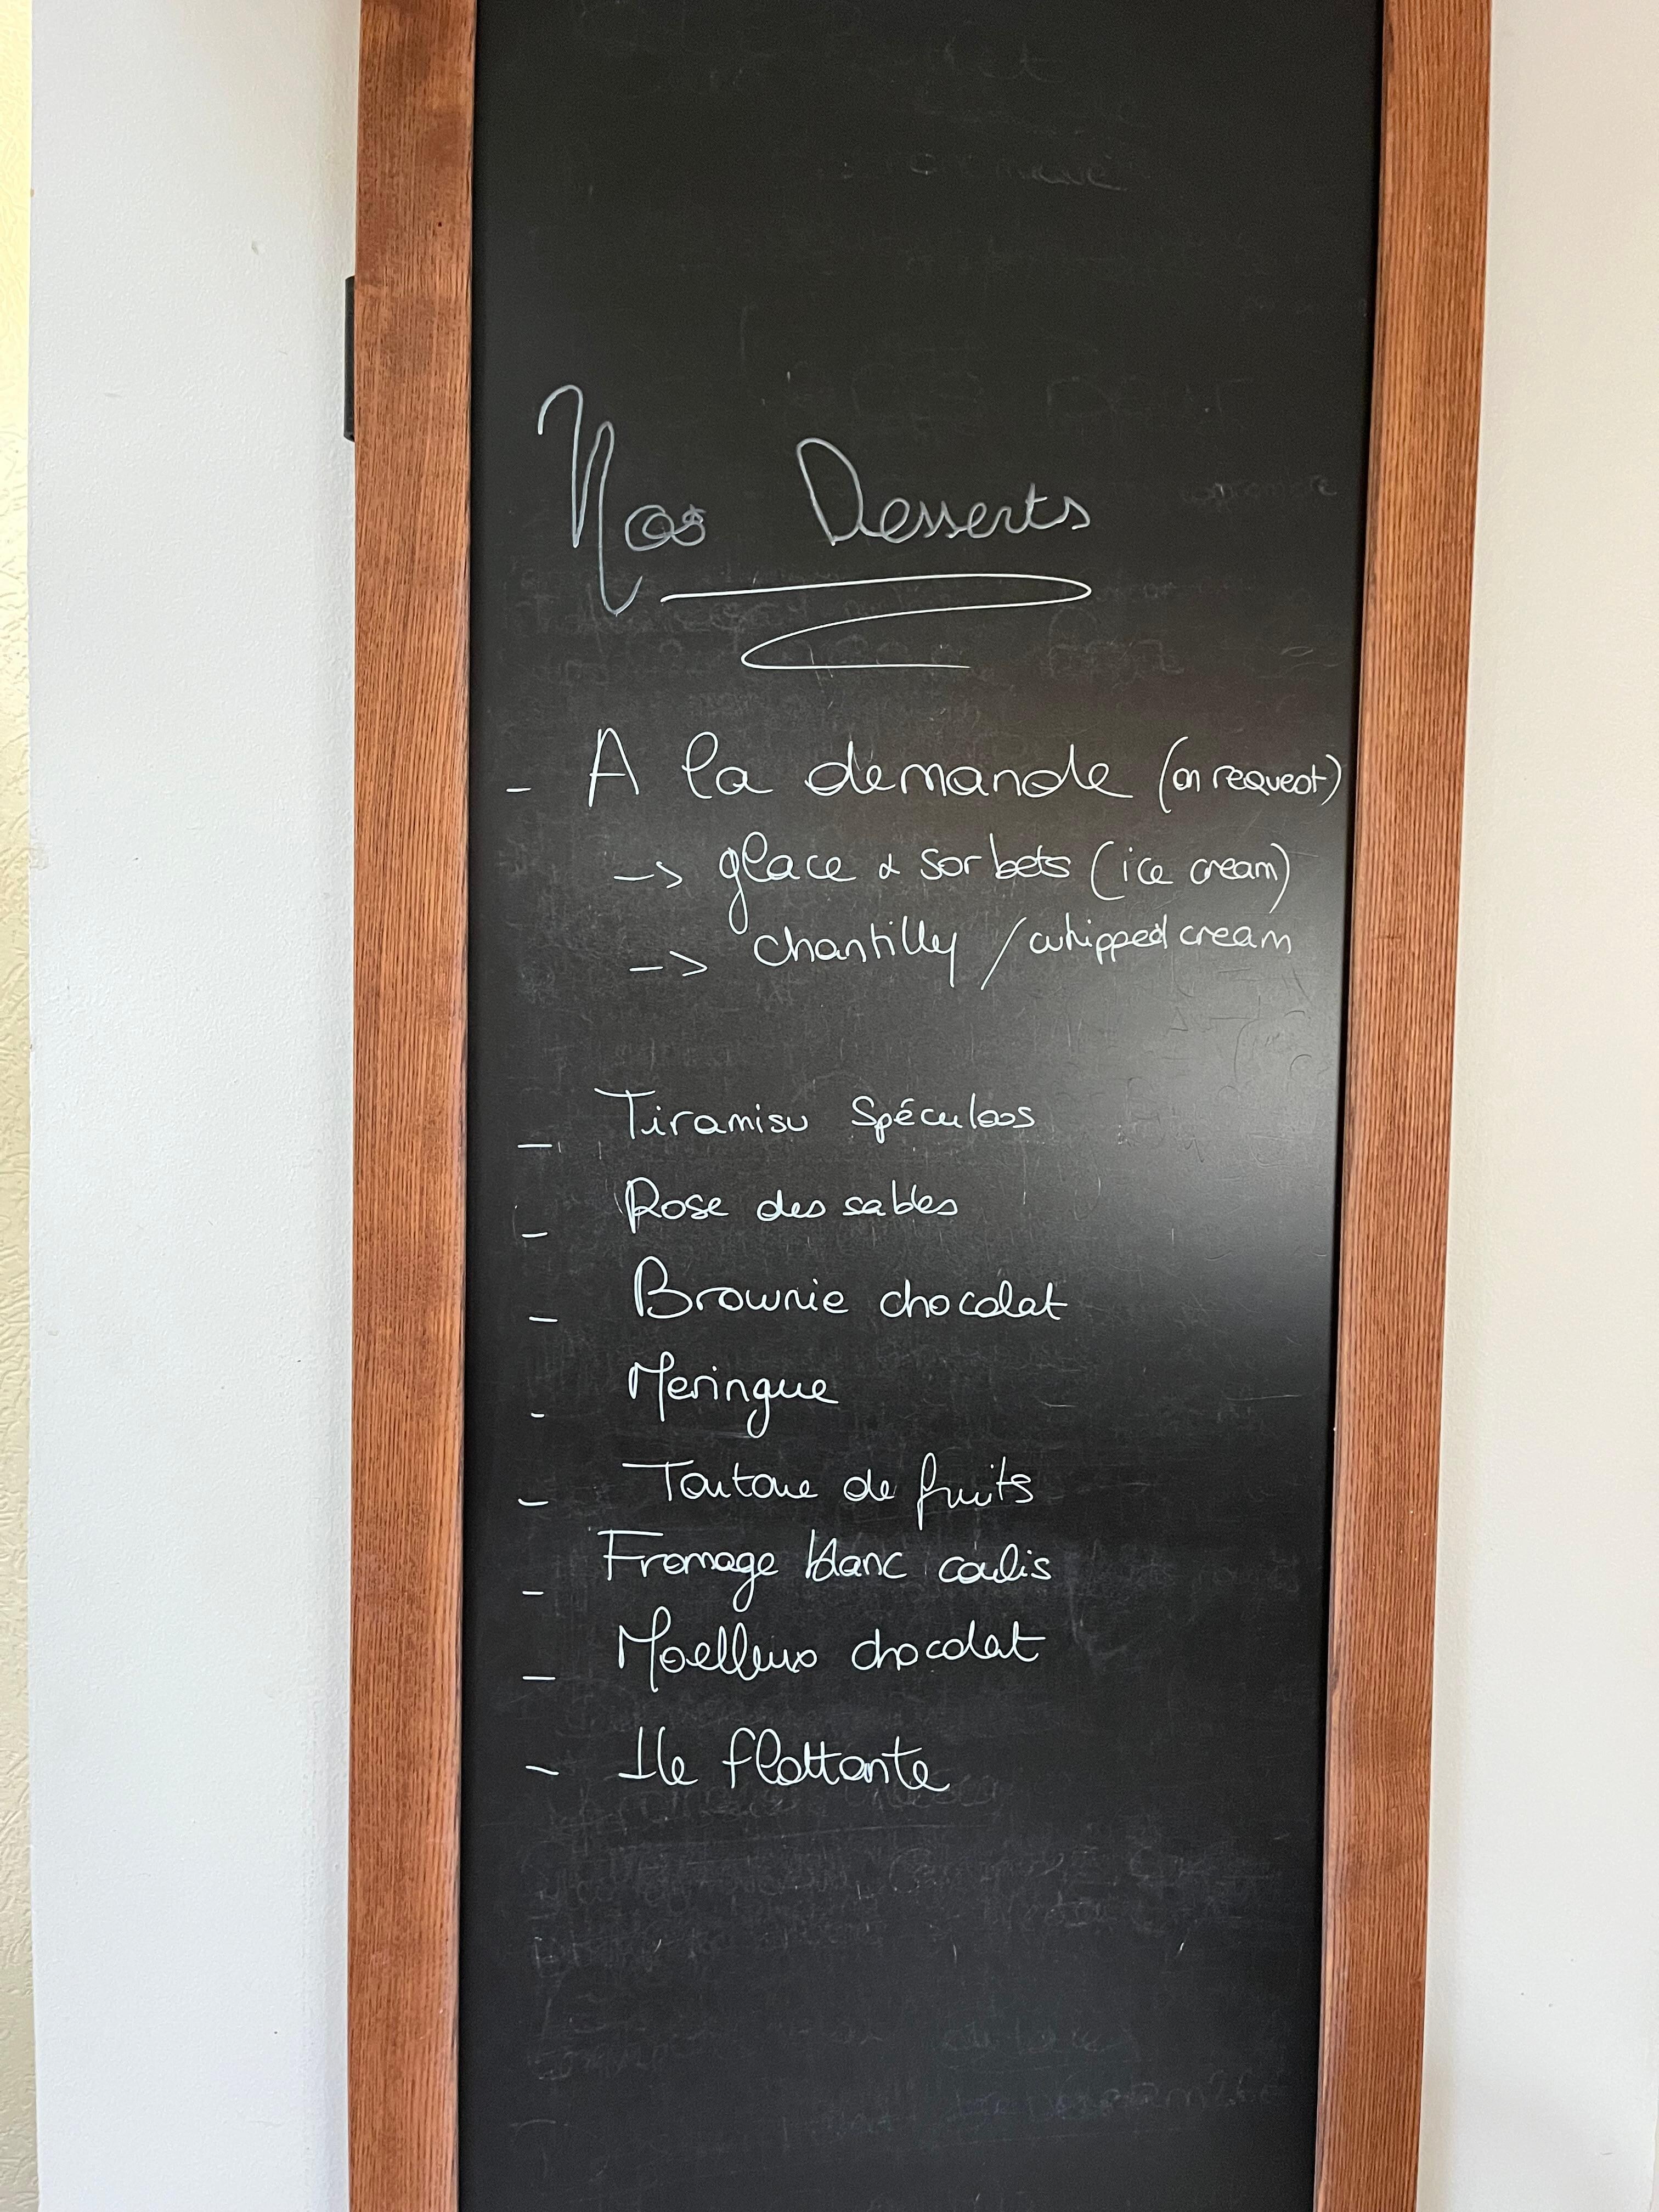 Nos Desserts
- A la demande (on request)
-> glace & sorbets (ice cream)
-> chantilly / whipped cream
- Tiramisu Spéculoos
- Rose des sables
- Brownie chocolat
- Meringue
- Tartare de fruits
- Fromage blanc coulis
- Moelleux chocolat
- Ile flottante